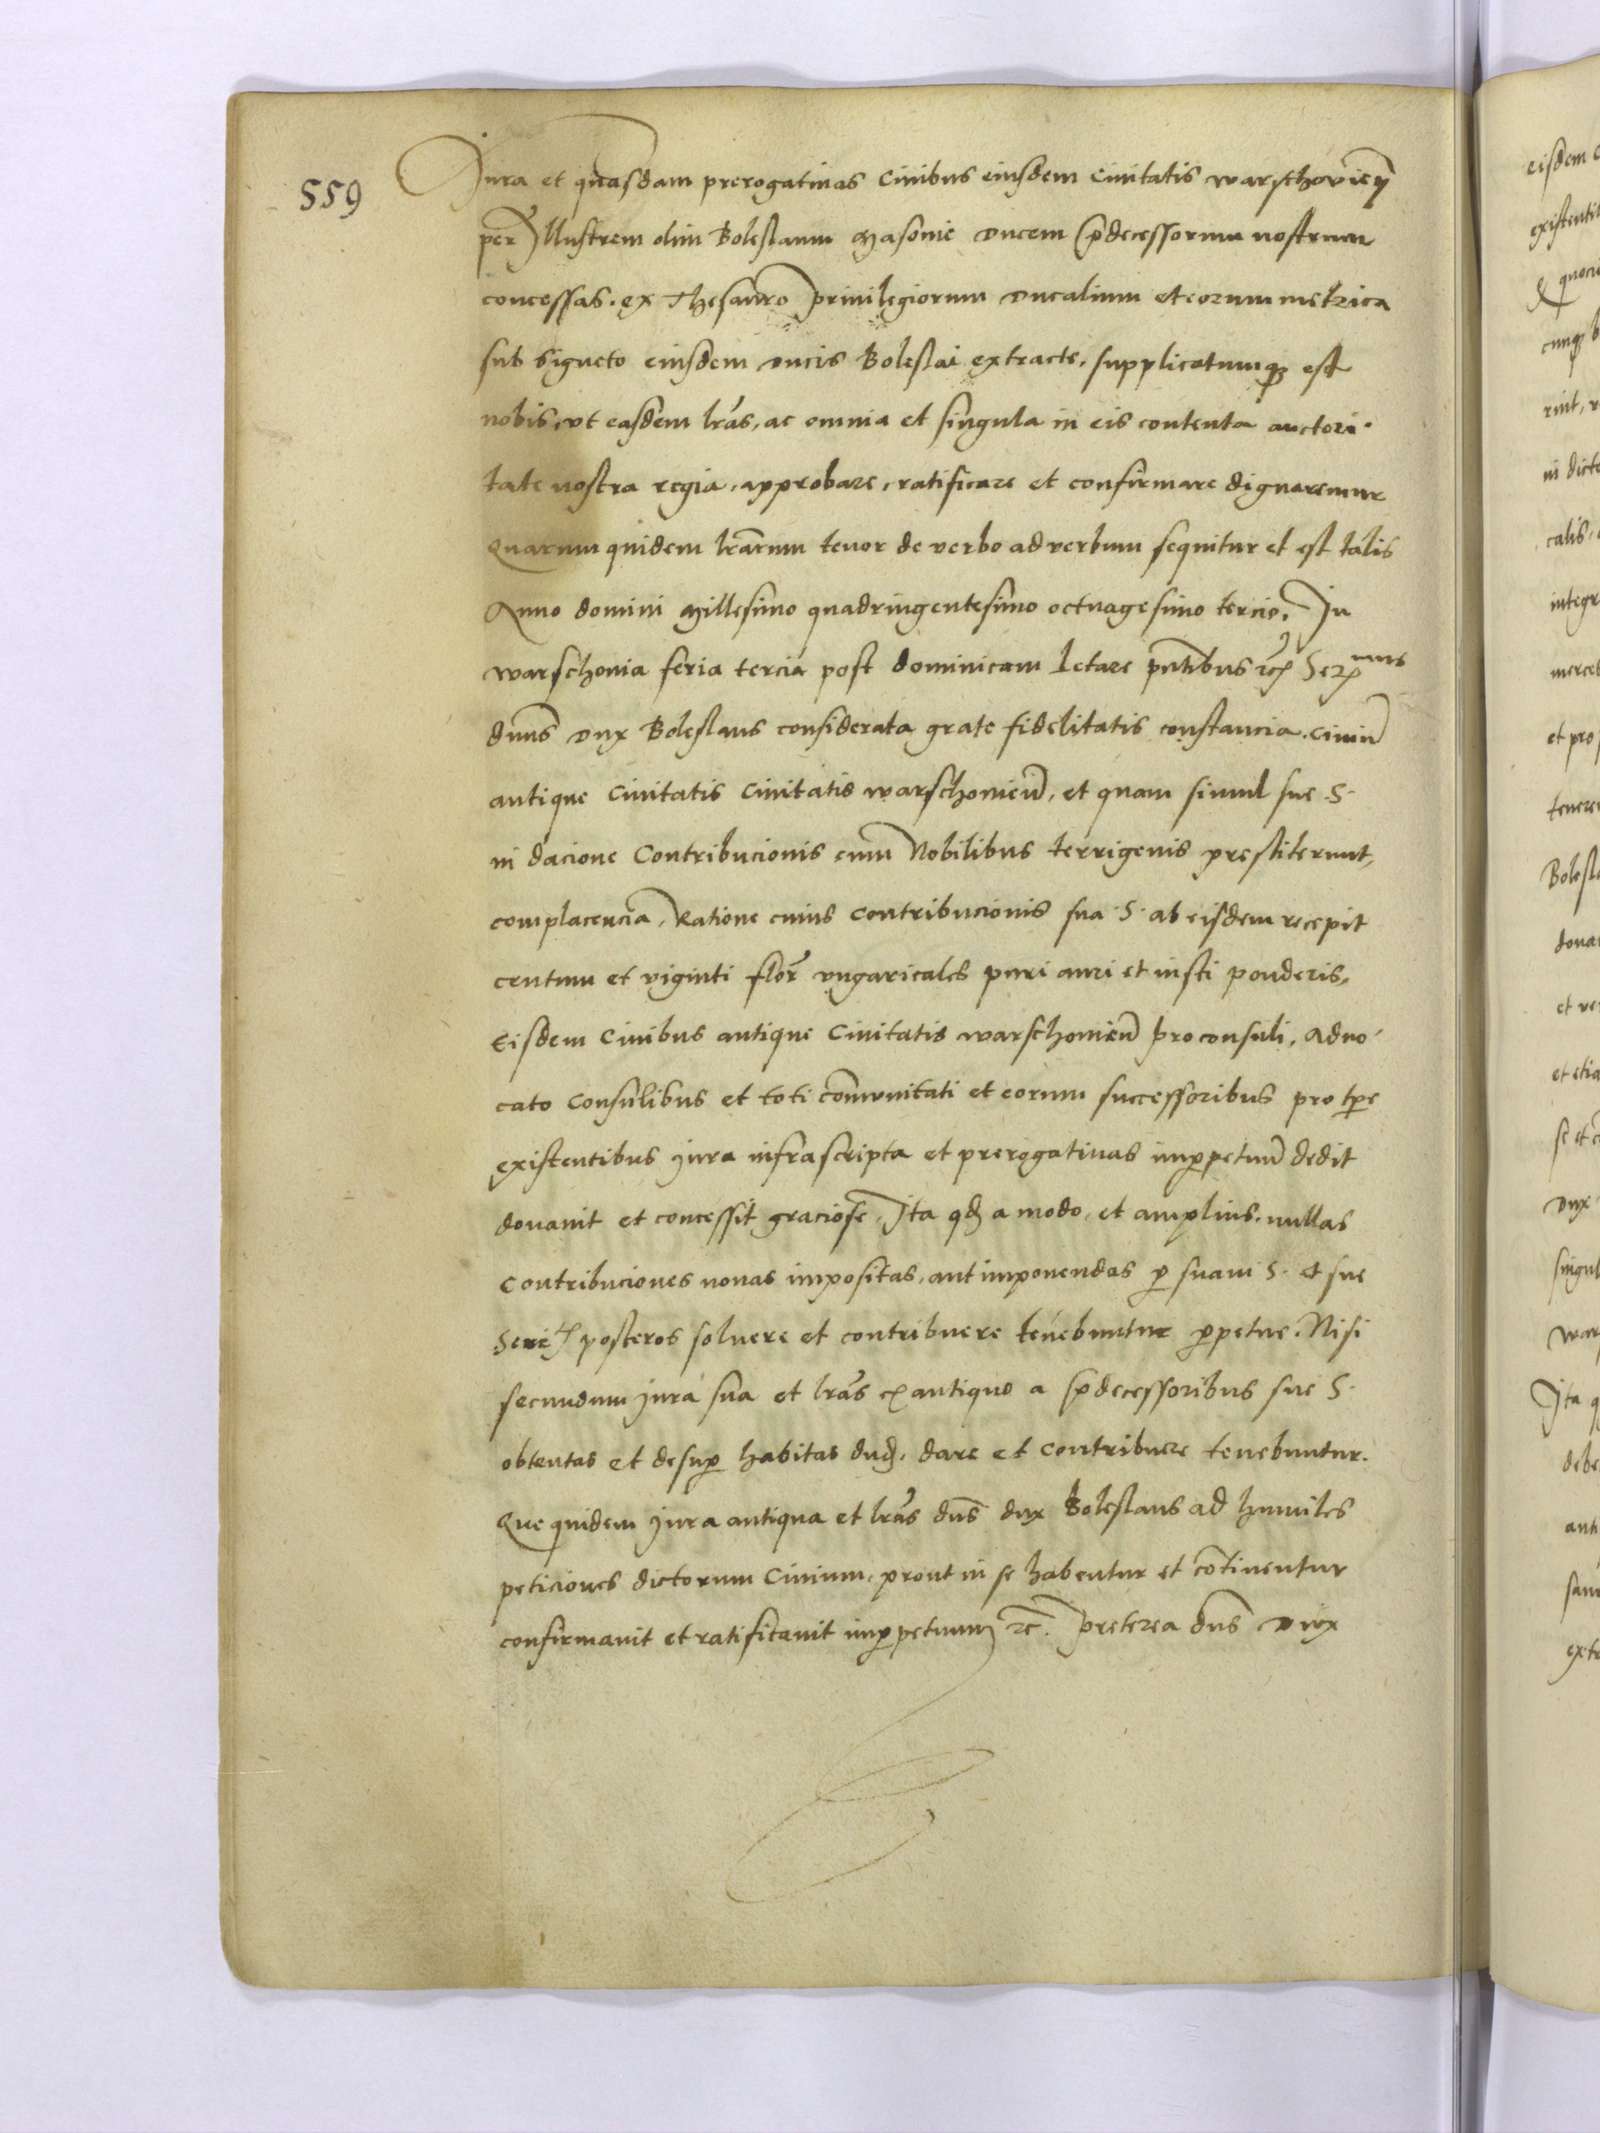 559
Jura et quasdam prerogatiuas Ciuibus eiusdem Ciuitatis warschouien̄
per Illustrem olim Boleslaum Masouie Ducem p̄decessorum nostrum
concessas. ex Thesauro priuilegiorum Ducalium et eorum metrica
sub signeto eiusdem Ducis Boleslai extracte, supplicatumqꝫ est
nobis, vt easdem lr̄as, ac omnia et singula in eis contenta auctori-
tate nostra regia, approbare, ratificare et confirmare dignaremur
Quarum quidem lr̄arum tenor de verbo ad verbum sequitur et est talis
Anno domini Millesimo quadringentesimo octuagesimo tercio. In
warschouia feria tercia post dominicam letare pn̄tibus rc̄ Serᵐᵘˢ
dnns̄ Dux Boleslaus considerata grate fidelitatis constancia. Ciuiū
antique Ciuitatis Ciuitatis warschouien̄, et quam simul sue S.
in dacione Contribucionis cum Nobilibus terrigenis prestiterunt,
complacencia, Ratione cuius contribucionis sua S. ab eisdem recepit
centum et viginti flor̄ vngaricales puri auri et iusti ponderis,
Eisdem Ciuibus antique Ciuitatis warschouien̄ proconsuli, Aduo-
cato Consulibus et toti com̄unitati et eorum successoribus pro tp̄e
existentibus Jura infrascripta et prerogatiuas imꝑpetuū dedit
donauit et concessit graciose, Ita qd̄ a modo, et amplius. nullas
Contribuciones nouas impositas, aut imponendas ꝑ suam S. et sue
Serᵗⁱˢ posteros soluere et contribuere tenebuntur ꝑpetue. Nisi
secundum Jura sua et lr̄as ex antiquo a p̄decessoribus sue S.
obtentas et desuꝑ habitas dare et contribuere tenebuntur.
Que quidem Jura antiqua et lr̄as dns̄ dux Boleslaus ad humiles
peticiones dictorum Ciuium, prout in se habentur et cōtinentur
confirmauit et ratificauit imꝑpetuum rc̄. Preterea dns̄ Dux
eisdem
existenti
cumqꝫ
rint,
in dict
calis,
integr
merce
et pro
tenere
Bolesl
dona
et ve
et etia
se et
Dux
singul
war
Ita q
debe
anti
extr